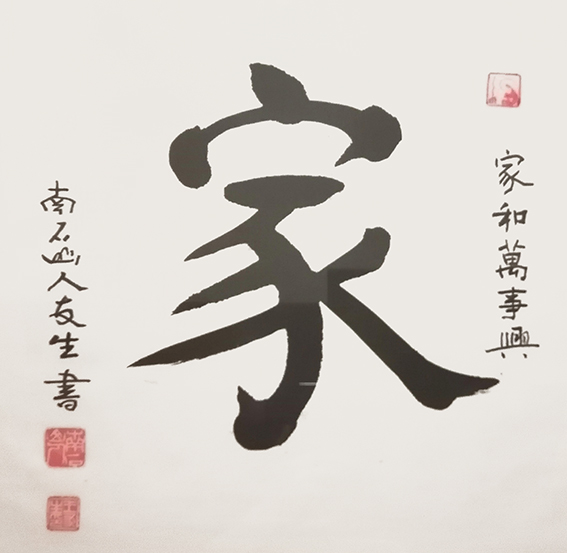 家和萬事興
家
南石山人友生書